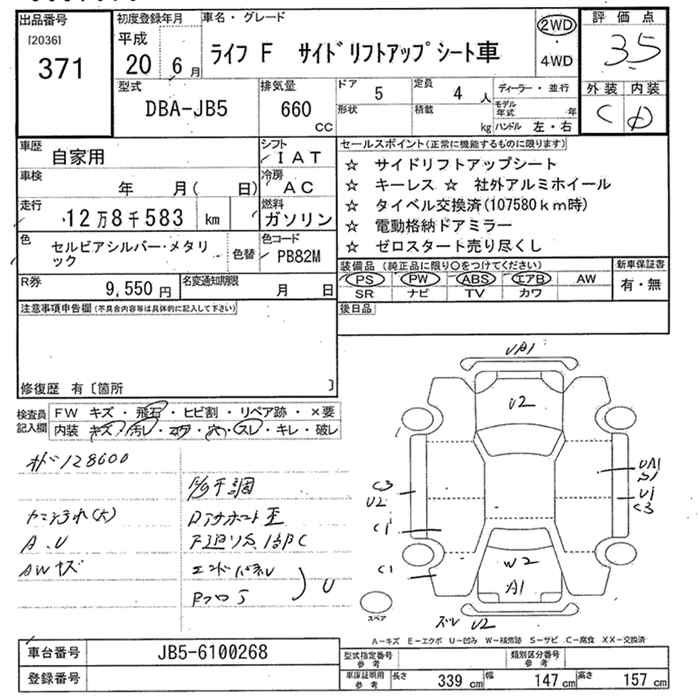 出品番号
[2036]
371
初度登録年月
平成
20 年 6 月
車名・グレード
ライフ F サイドリフトアップシート車
2WD
・
4WD
評価点
3.5
外装 内装
C D
型式
DBA-JB5
排気量
660 CC
ドア
5
定員
4 人
形状
積載
kg
ディーラー・並行
モデル年式 年
ハンドル 左・右
車歴
自家用
シフト
IAT
車検
年 月( 日)
冷房
AC
走行
12万8千583 km
燃料
ガソリン
色
セルビアシルバー・メタリック
色替
色コード
PB82M
R券
9,550 円
名変通知期限
月 日
セールスポイント(正常に機能するものに限ります)
☆ サイドリフトアップシート
☆ キーレス ☆ 社外アルミホイール
☆ タイベル交換済(107580km時)
☆ 電動格納ドアミラー
☆ ゼロスタート売り尽くし
装備品(純正品に限り〇をつけてください)
PS PW ABS エアB AW
SR ナビ TV カワ
新車保証書
有・無
後日品
注意事項申告欄(不具合内容等は具体的に記入して下さい)
修復歴 有〔箇所 〕
検査員記入欄
FW キズ・飛石・ヒビ割・リペア跡・×要
内装 キズ・汚レ・コゲ・穴・スレ・キレ・破レ
128600
A.U
AWキズ
U
UA1
U2
C3
U2
C1
C1
UA1
S1
U1
C3
W2
A1
U2
スペア
A-キズ E-エクボ U-凹み W-補修跡 S-サビ C-腐食 XX-交換済
車台番号
JB5-6100268
登録番号
型式指定番号
参考
類別区分番号
参考
車庫証明用
参考
長さ 339 cm
幅 147 cm
高さ 157 cm